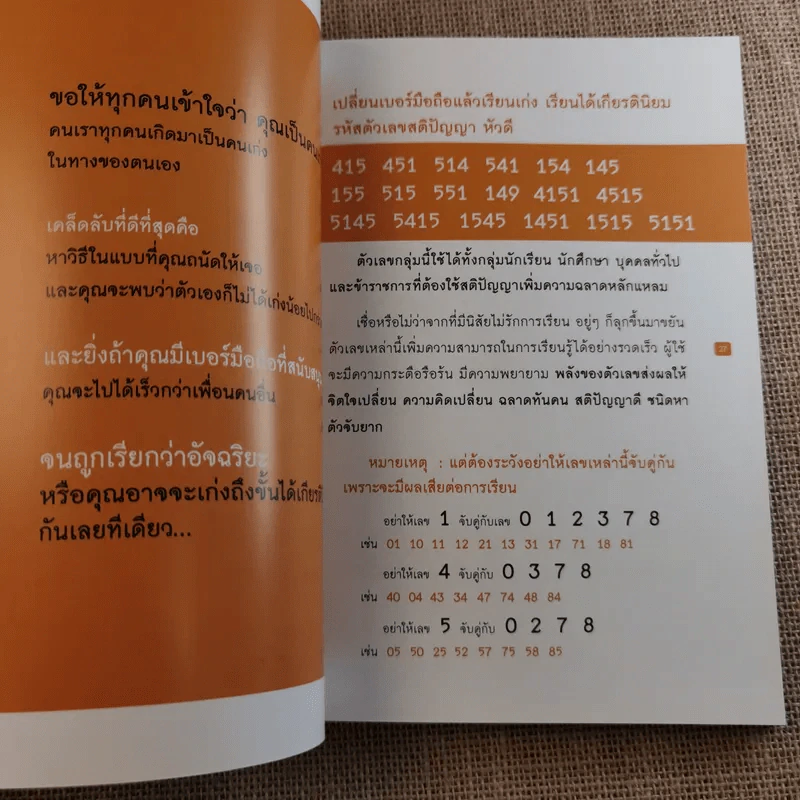 ขอให้ทุกคนเข้าใจว่า คุณเป็นคน
คนเราทุกคนเกิดมาเป็นคนเก่ง
ในทางของตนเอง
เคล็ดลับที่ดีที่สุดคือ
หาวิธีในแบบที่คุณถนัดให้เจอ
และคุณจะพบว่าตัวเองก็ไม่ได้เก่งน้อยไปกว่า
และยิ่งถ้าคุณมีเบอร์มือถือที่สนับสนุน
คุณจะไปได้เร็วกว่าเพื่อนคนอื่น
จนถูกเรียกว่าอัจฉริยะ
หรือคุณอาจจะเก่งถึงขั้นได้เกียรติ
กันเลยทีเดียว...
เปลี่ยนเบอร์มือถือแล้วเรียนเก่ง เรียนได้เกียรตินิยม
รหัสตัวเลขสติปัญญา หัวดี
415 451 514 541 154 145
155 515 551 149 4151 4515
5145 5415 1545 1451 1515 5151
ตัวเลขกลุ่มนี้ใช้ได้ทั้งกลุ่มนักเรียน นักศึกษา บุคคลทั่วไป
และข้าราชการที่ต้องใช้สติปัญญาเพิ่มความฉลาดหลักแหลม
เชื่อหรือไม่ว่าจากที่มีนิสัยไม่รักการเรียน อยู่ๆ ก็ลุกขึ้นมาขยัน
ตัวเลขเหล่านี้เพิ่มความสามารถในการเรียนรู้ได้อย่างรวดเร็ว ผู้ใช้
จะมีความกระตือรือร้น มีความพยายาม พลังของตัวเลขส่งผลให้
จิตใจเปลี่ยน ความคิดเปลี่ยน ฉลาดทันคน สติปัญญาดี ชนิดหา
ตัวจับยาก
หมายเหตุ : แต่ต้องระวังอย่าให้เลขเหล่านี้จับคู่กัน
เพราะจะมีผลเสียต่อการเรียน
อย่าให้เลข 1 จับคู่กับเลข 0 1 2 3 7 8
เช่น 01 10 11 12 21 13 31 17 71 18 81
อย่าให้เลข 4 จับคู่กับ 0 3 7 8
เช่น 40 04 43 34 47 74 48 84
อย่าให้เลข 5 จับคู่กับ 0 2 7 8
เช่น 05 50 25 52 57 75 58 85